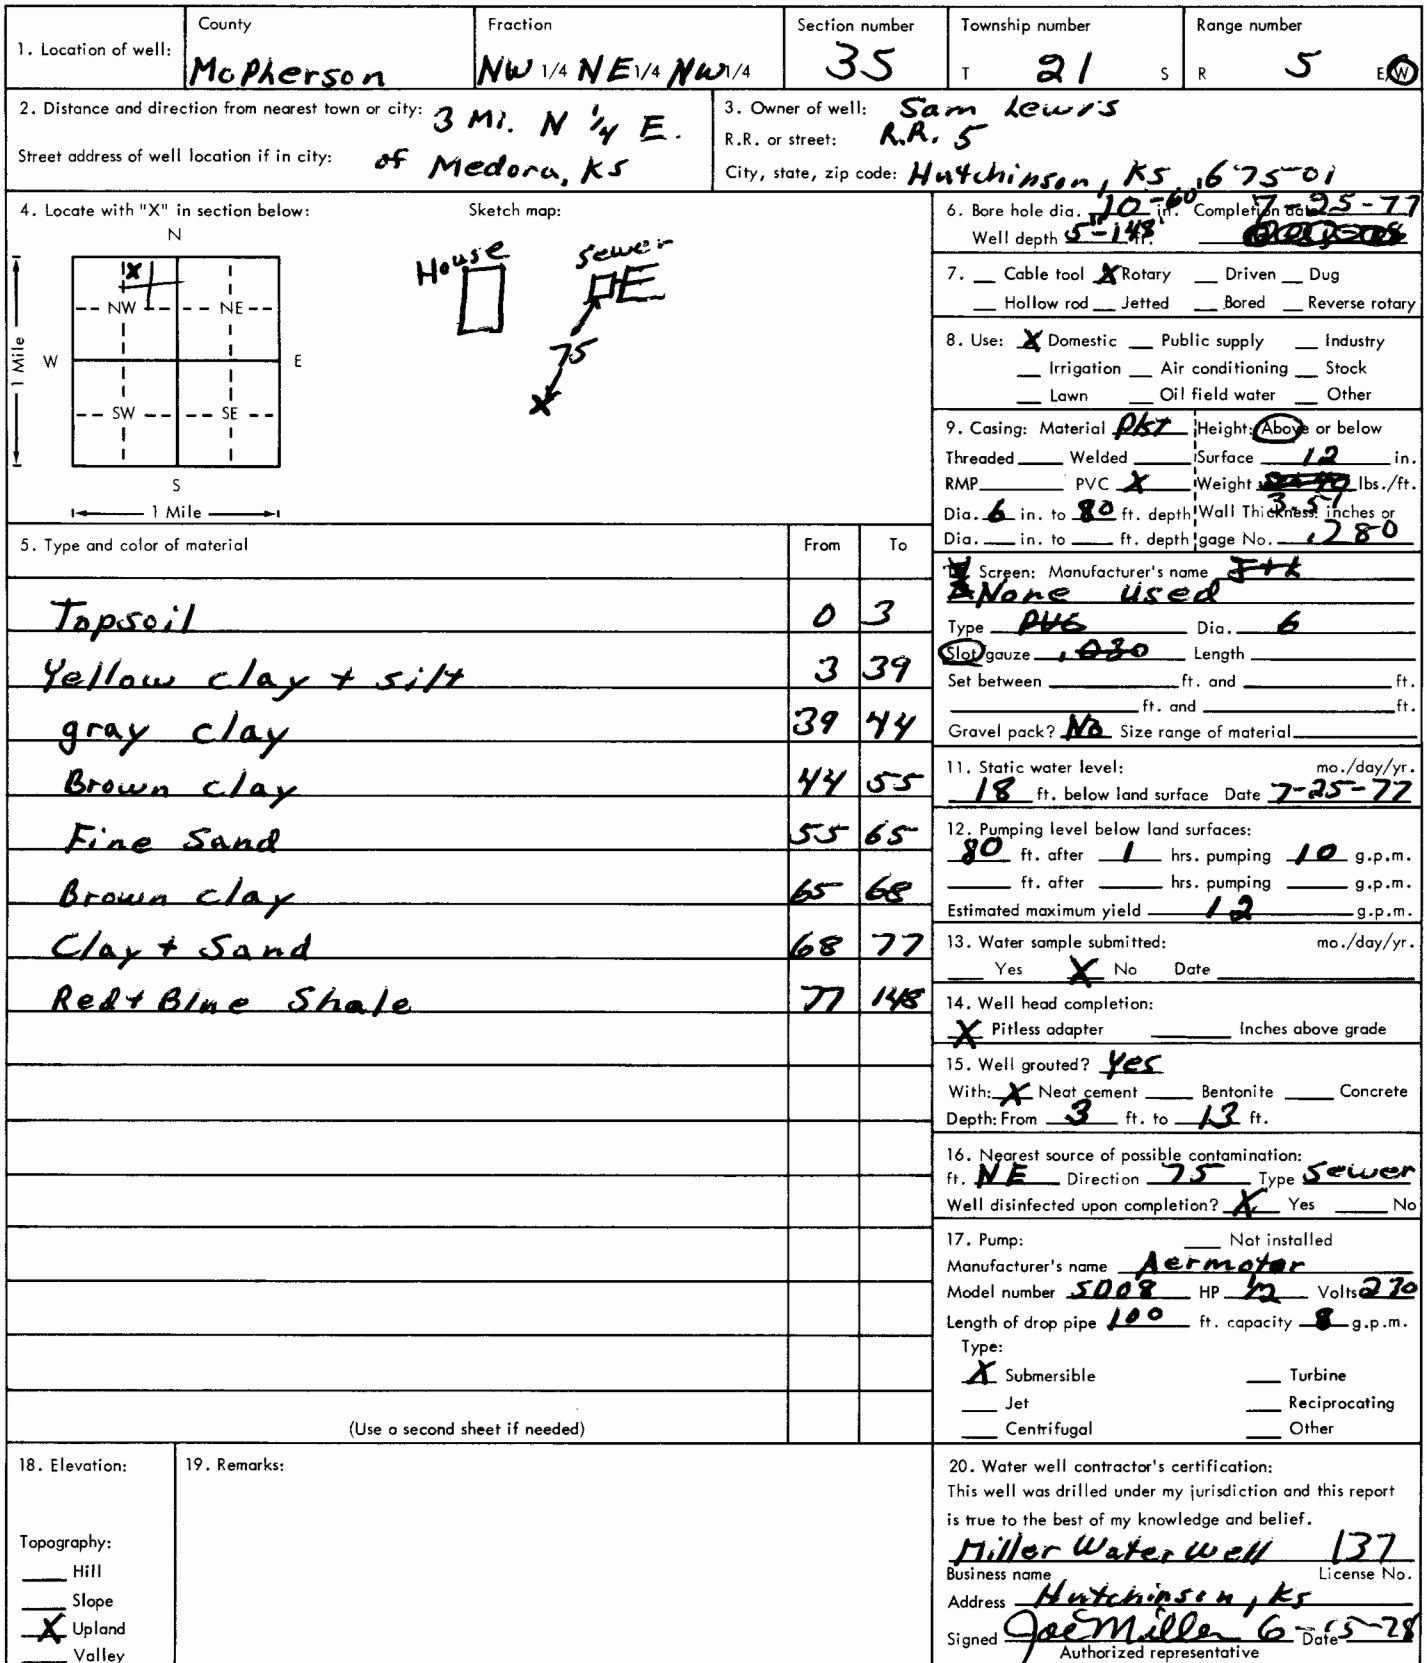 1. Location of well: County McPherson Fraction NW 1/4 NE 1/4 NW 1/4 Section number 35 Township number T 21 S Range number R 5 E/W
2. Distance and direction from nearest town or city: 3 Mi. N 1/4 E.
Street address of well location if in city: of Medora, KS
3. Owner of well: Sam Lewis
R.R. or street: R.R. 5
City, state, zip code: Hutchinson, KS, 67501
4. Locate with "X" in section below:
N
X
NW NE
W E
SW SE
S
1 Mile
1 Mile
Sketch map:
House sewer
75
X
5. Type and color of material From To
Topsoil 0 3
Yellow clay + silt 3 39
gray clay 39 44
Brown clay 44 55
Fine Sand 55 65
Brown clay 65 68
Clay + Sand 68 77
Red + Blue Shale 77 148
(Use a second sheet if needed)
6. Bore hole dia. 10-60 in. Completion date 7-25-77
Well depth 5-148 ft.
7. Cable tool X Rotary Driven Dug
Hollow rod Jetted Bored Reverse rotary
8. Use: X Domestic Public supply Industry
Irrigation Air conditioning Stock
Lawn Oil field water Other
9. Casing: Material Plst Height: Above or below
Threaded Welded Surface 12 in.
RMP PVC X Weight lbs./ft.
3.51
Dia. 6 in. to 80 ft. depth Wall Thickness: inches or
Dia. in. to ft. depth gage No. .280
Screen: Manufacturer's name
None used
Type PVC Dia. 6
Slot gauze .030 Length
Set between ft. and ft.
ft. and ft.
Gravel pack? No Size range of material
11. Static water level: mo./day/yr.
18 ft. below land surface Date 7-25-77
12. Pumping level below land surfaces:
80 ft. after 1 hrs. pumping 10 g.p.m.
ft. after hrs. pumping g.p.m.
Estimated maximum yield 12 g.p.m.
13. Water sample submitted: mo./day/yr.
Yes X No Date
14. Well head completion:
X Pitless adapter Inches above grade
15. Well grouted? Yes
With: X Neat cement Bentonite Concrete
Depth: From 3 ft. to 13 ft.
16. Nearest source of possible contamination:
ft. NE Direction 75 Type Sewer
Well disinfected upon completion? X Yes No
17. Pump: Not installed
Manufacturer's name Aermotor
Model number SD08 HP 1/2 Volts 230
Length of drop pipe 100 ft. capacity 8 g.p.m.
Type:
X Submersible Turbine
Jet Reciprocating
Centrifugal Other
18. Elevation:
Topography:
Hill
Slope
X Upland
Valley
19. Remarks:
20. Water well contractor's certification:
This well was drilled under my jurisdiction and this report
is true to the best of my knowledge and belief.
Miller Water Well 137
Business name License No.
Address Hutchinson, Ks
Signed Joe Miller Date 6-15-78
Authorized representative